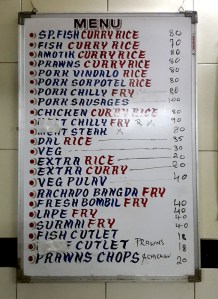 MENU
SP. FISH CURRY RICE 80
FISH CURRY RICE 70
AMOTIK CURRY RICE 80
PRAWNS CURRY RICE 80
PORK VINDALO RICE 80
PORK SORPOTEL RICE 80
PORK CHILLY FRY
PORK SAUSAGES 100
CHICKEN CURRY RICE 80
CHILLY FRY 90
STEAK X
DAL RICE 35
VEG 30
EXTRA RICE 20
EXTRA CURRY 20
VEG PULAV 40
BACHADO BANGDA FRY
FRESH BOMBIL FRY 40
LAPE FRY 40
SURMAI FRY
FISH CUTLET 18
CUTLET PRAWNS 18
PRAWNS CHOPS &CHICKEN 20